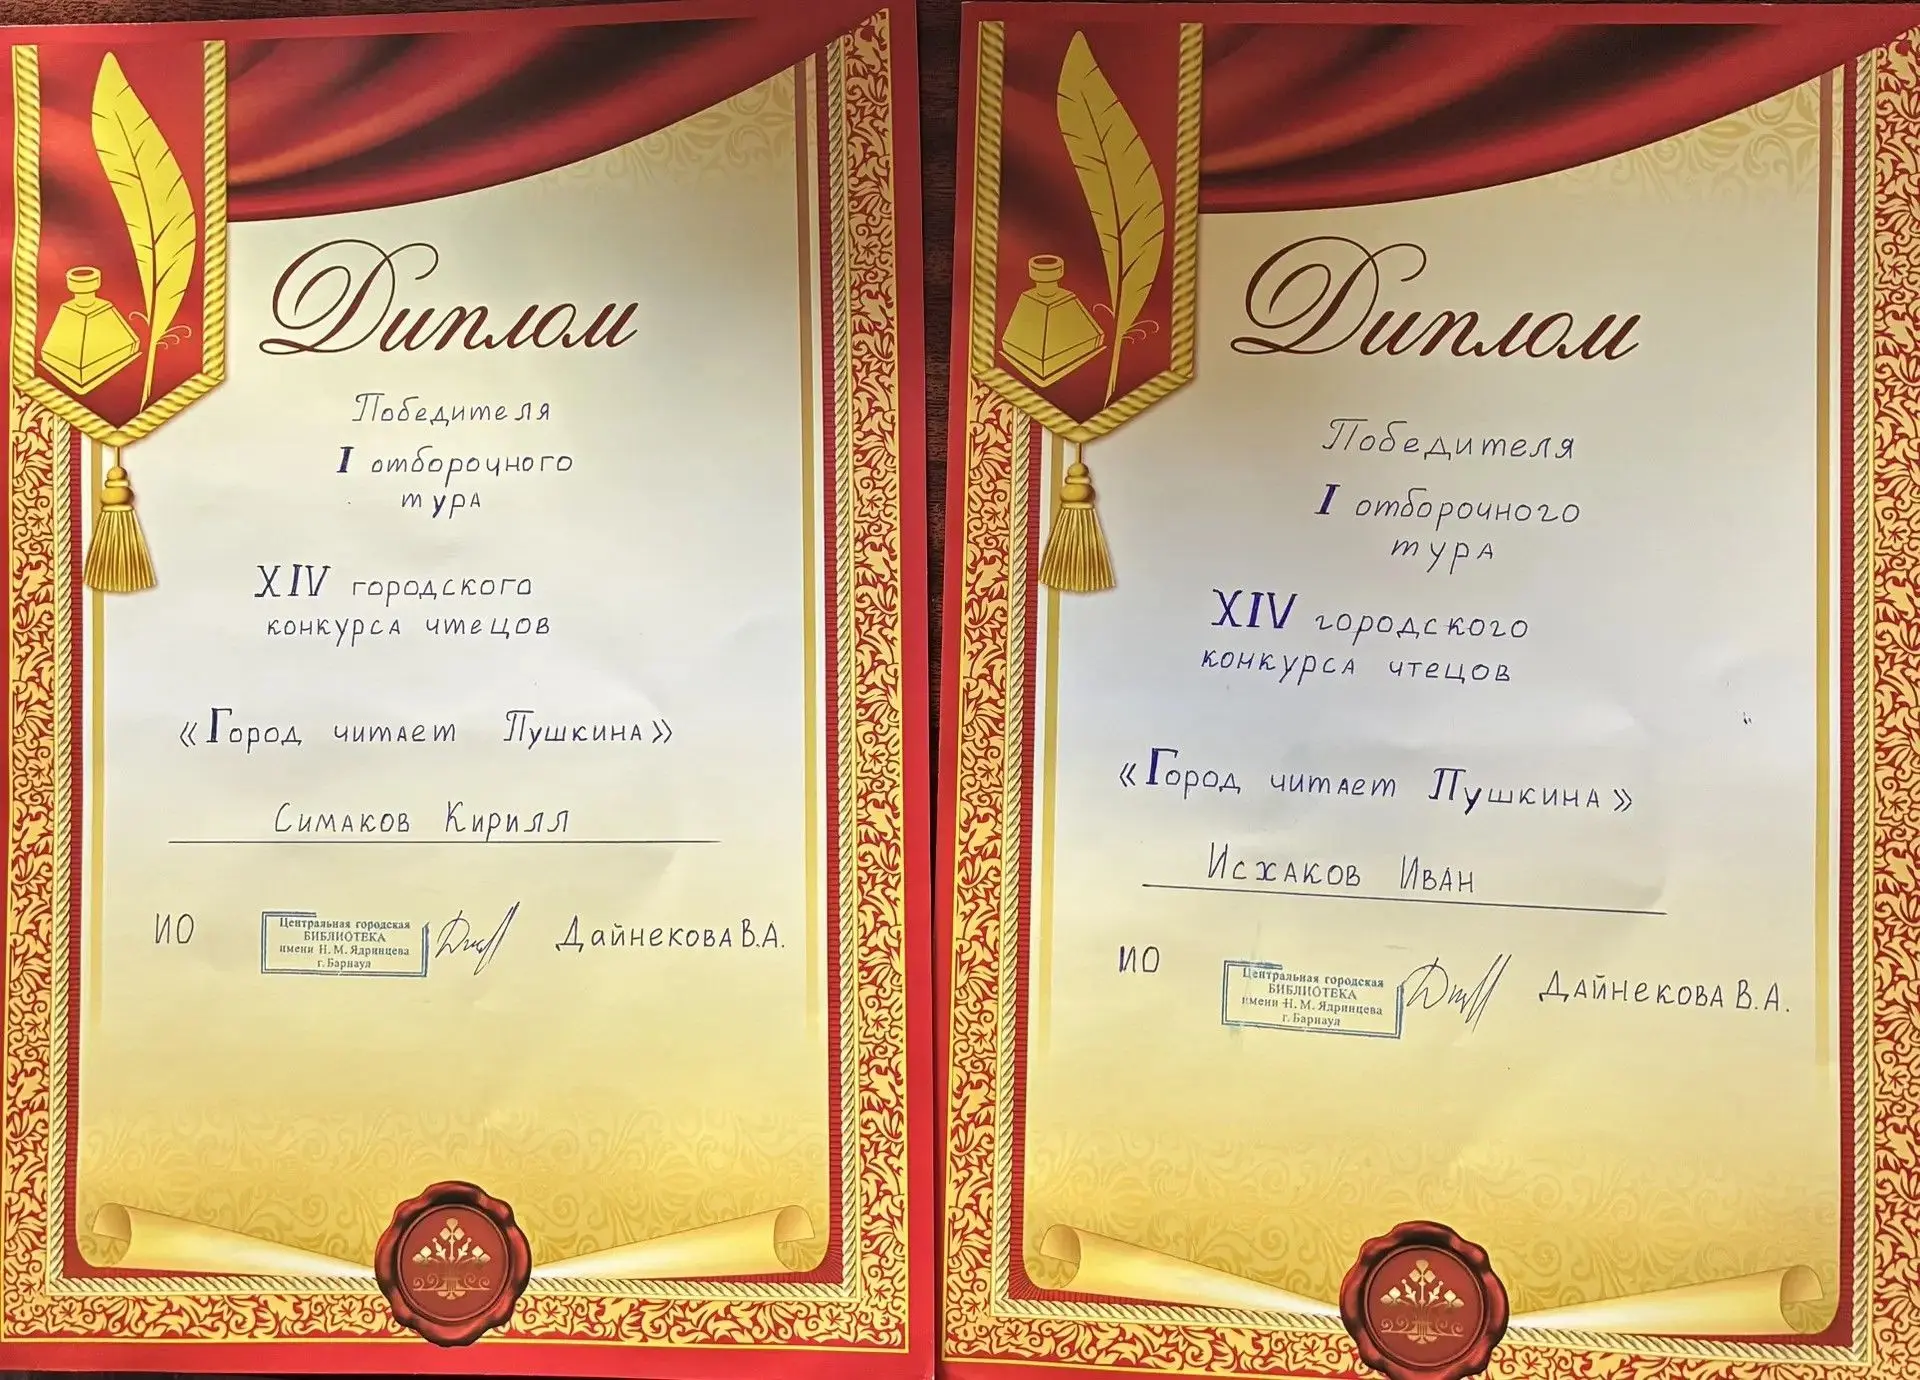 Диплом
Победителя
I отборочного
тура
XIV городского
конкурса чтецов
«Город читает Пушкина»
Симаков Кирилл
ИО
Центральная городская
БИБЛИОТЕКА
имени Н. М. Ядринцева
г. Барнаул
Дайнекова В.А.
Диплом
Победителя
I отборочного
тура
XIV городского
конкурса чтецов
«Город читает Пушкина»
Исхаков Иван
ИО
Центральная городская
БИБЛИОТЕКА
имени Н. М. Ядринцева
г. Барнаул
Дайнекова В.А.